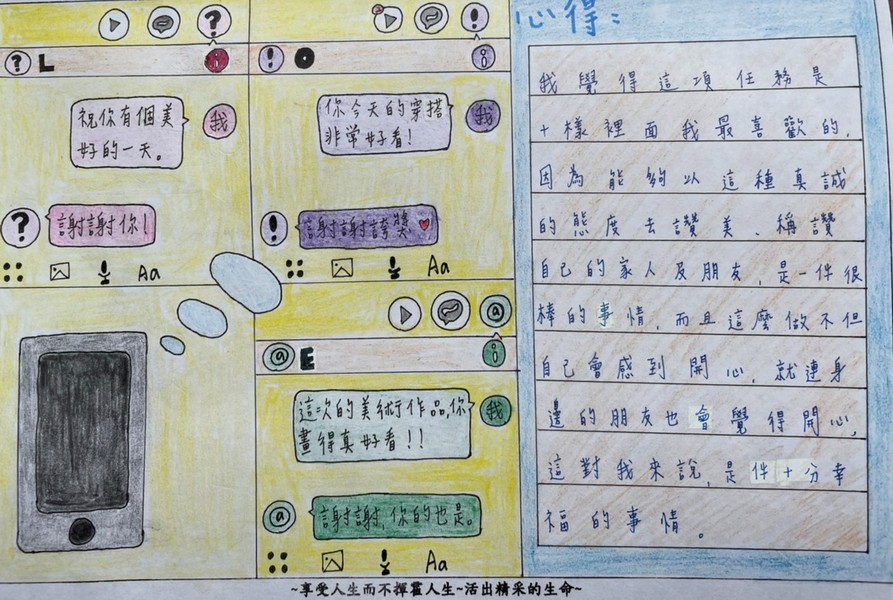 L
祝你有個美
好的一天。
我
謝謝你！
Aa
O
你今天的穿搭
非常好看！
我
謝謝誇獎
Aa
E
這次的美術作品，你
畫得真好看！！
我
謝謝，你的也是。
Aa
心得：
我覺得這項任務是
十樣裡面我最喜歡的，
因為能夠以這種真誠
的態度去讚美、稱讚
自己的家人及朋友，是一件很
棒的事情，而且這麼做不但
自己會感到開心，就連身
邊的朋友也會覺得開心，
這對我來說，是件十分幸
福的事情。
~享受人生而不揮霍人生~活出精采的生命~